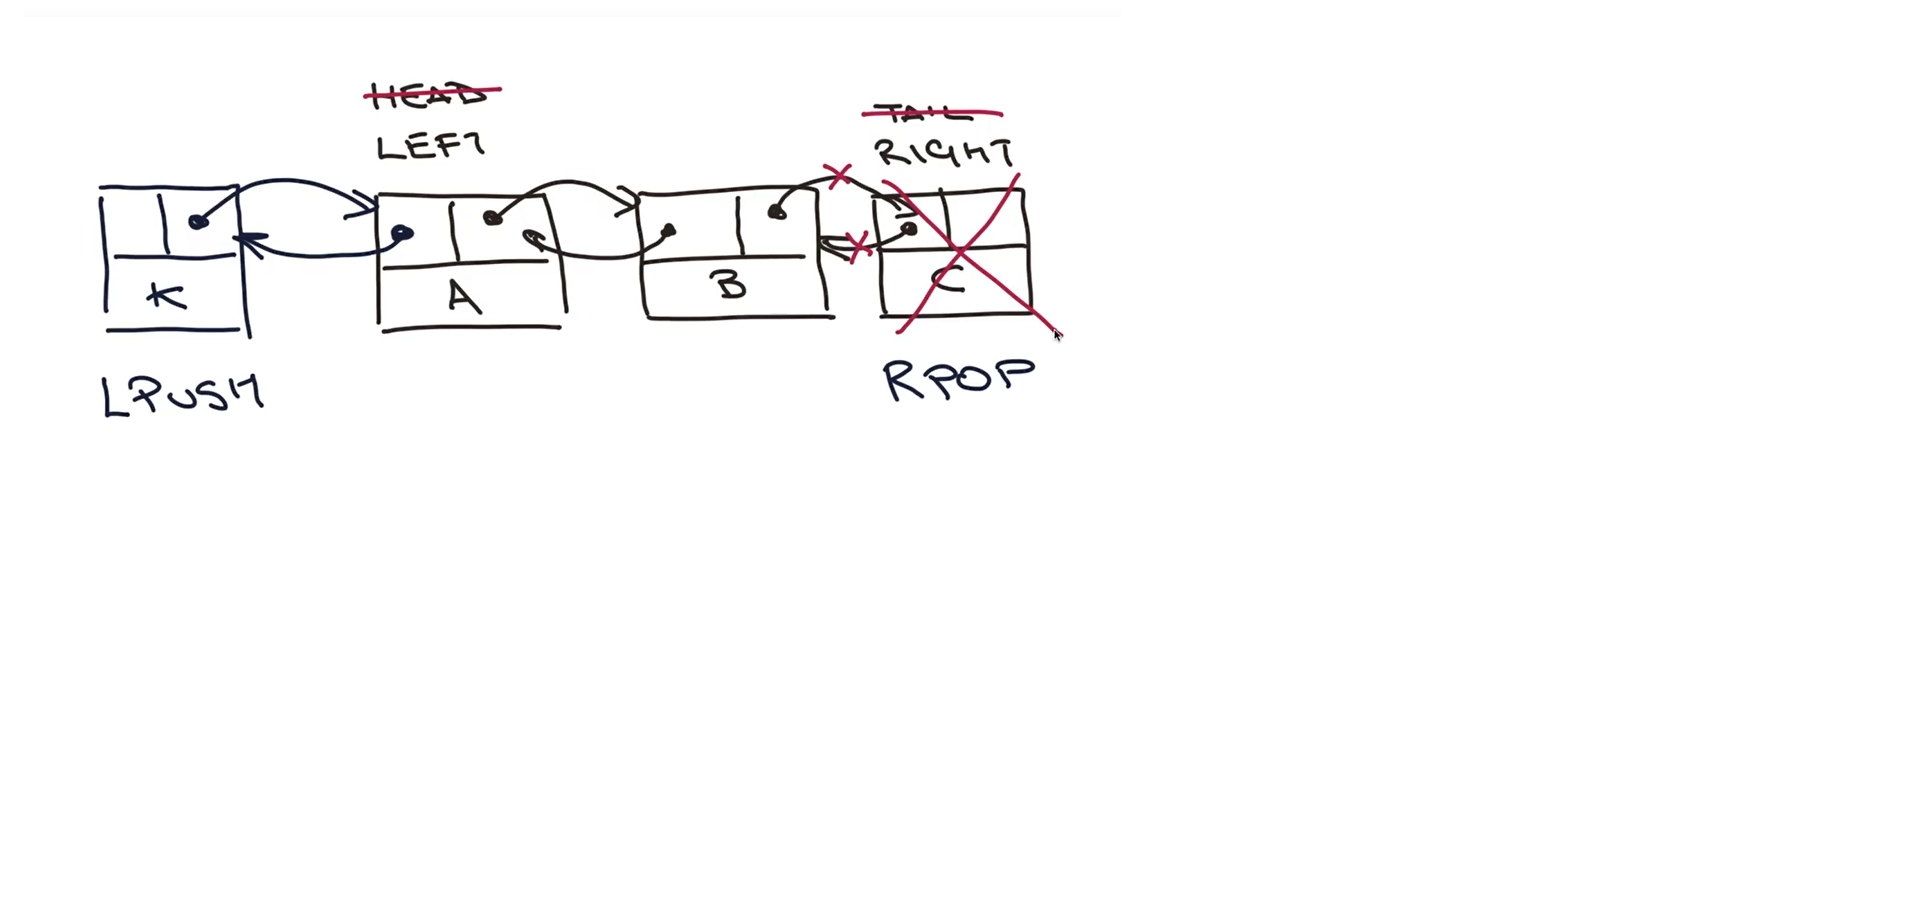 HEAD
LEFT
TAIL
RIGHT
K
A
B
C
LPUSH
RPOP